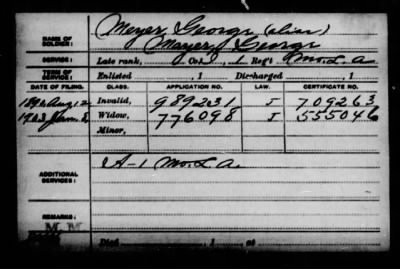 NAME OF SOLDIER: Meyer, George (alias)
Mayer, George
SERVICE: Late rank, Co. I, 1 Reg't Mo. L. A.
TERM OF SERVICE: Enlisted , 1 Discharged , 1
DATE OF FILING. CLASS. APPLICATION NO. LAW. CERTIFICATE NO.
1891 Aug. 12 Invalid, 989231 J 709263
Widow, 776098 J 555046
Minor,
ADDITIONAL SERVICES: A-1 Mo. L. A.
REMARKS:
Died , 1 , at